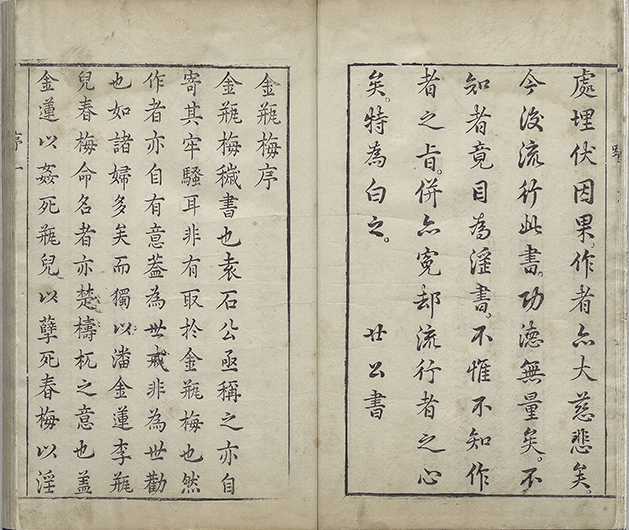 處埋伏因果。作者亦大慈悲矣。
今後流行此書。功德無量矣。不
知者竟目為淫書。不惟不知作
者之旨。併亦冤却流行者之心
矣。特為白之。
廿公書
金瓶梅序
金瓶梅穢書也袁石公亟稱之亦自
寄其牢騷耳非有取於金瓶梅也然
作者亦自有意葢為世戒非為世勸
也如諸婦多矣而獨以潘金蓮李瓶
兒春梅命名者亦楚檮杌之意也盖
金蓮以姦死瓶兒以孽死春梅以淫
序
一